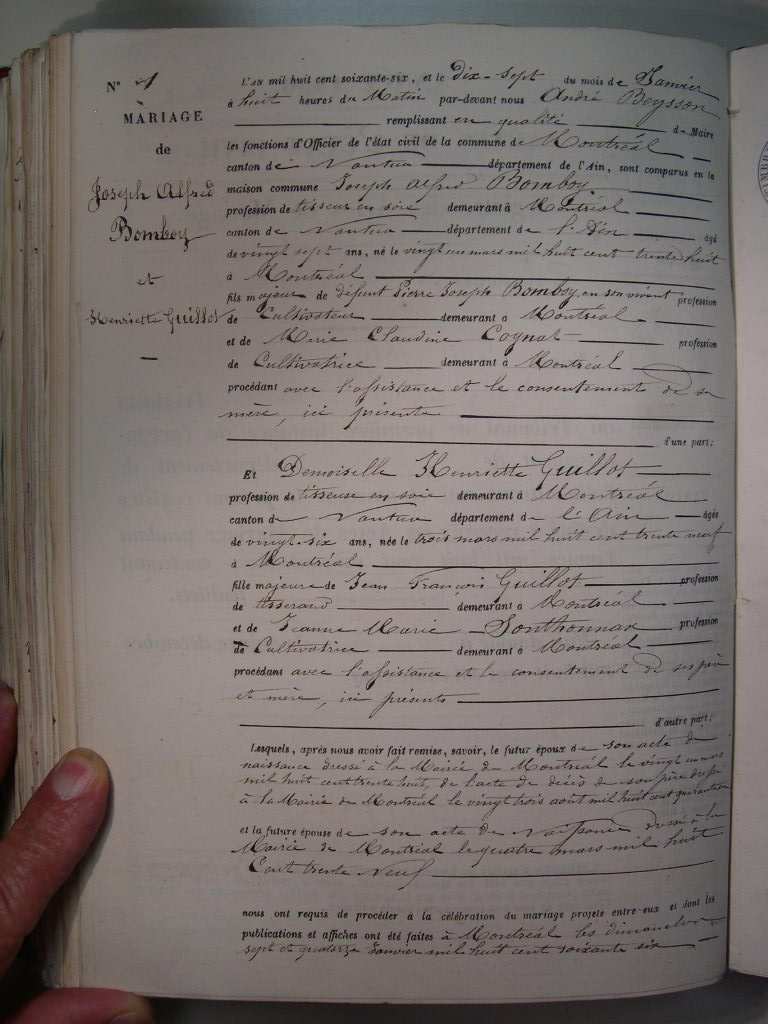 N° 1
MARIAGE
de
Joseph Alfred
Bomboy
et
Henriette Guillot
L'AN mil huit cent soixante-six, et le dix-sept du mois de Janvier
à huit heures du Matin par-devant nous André Beysson
remplissant en qualité de Maire
les fonctions d'Officier de l'état civil de la commune de Montréal
canton de Nantua département de l'Ain, sont comparus en la
maison commune Joseph Alfred Bomboy
profession de tisseur en soie demeurant à Montréal
canton de Nantua département de l'Ain âgé
de vingt sept ans, né le vingt un mars mil huit cent trente huit
à Montréal
fils majeur de défunt Pierre Joseph Bomboy, en son vivant profession
de Cultivateur demeurant à Montréal
et de Marie Claudine Cognat profession
de Cultivatrice demeurant à Montréal
procédant avec l'assistance et le consentement de sa
mère, ici présente
d'une part;
Et Demoiselle Henriette Guillot
profession de tisseuse en soie demeurant à Montréal
canton de Nantua département de l'Ain âgée
de vingt-six ans, née le trois mars mil huit cent trente neuf
à Montréal
fille majeure de Jean François Guillot profession
de tisserand demeurant à Montréal
et de Jeanne Marie Sonthonnax profession
de Cultivatrice demeurant à Montréal
procédant avec l'assistance et le consentement de ses père
et mère, ici présents
d'autre part;
Lesquels, après nous avoir fait remise, savoir, le futur époux de son acte de
naissance dressé à la Mairie de Montréal le vingt un mars
mil huit cent trente huit, de l'acte de décès de son père dressé
à la Mairie de Montréal le vingt trois août mil huit cent quarante
et la future épouse de son acte de Naissance dressé à la
Mairie de Montréal le quatre mars mil huit
Cent trente Neuf
nous ont requis de procéder à la célébration du mariage projeté entre eux et dont les
publications et affiches ont été faites à Montréal les dimanches
sept et quatorze Janvier mil huit cent soixante six